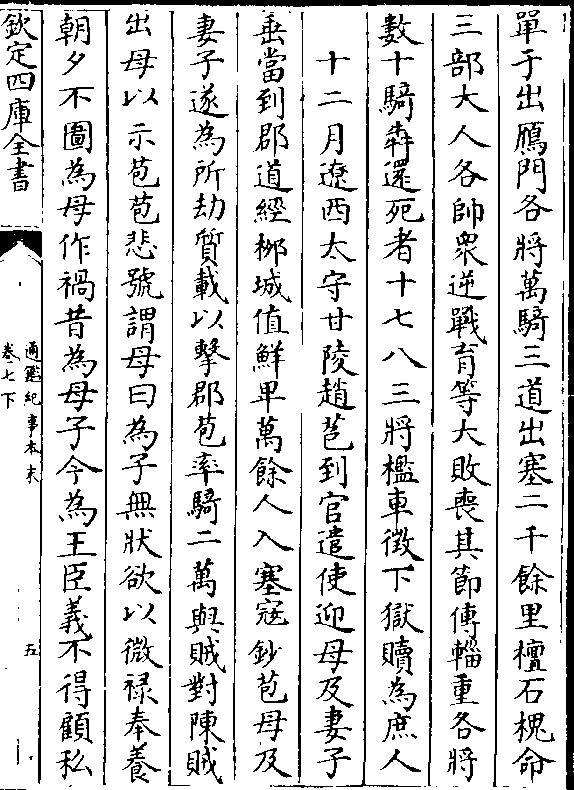 單于出鴈門各將萬騎三道出塞二千餘里檀石槐命
三部大人各帥衆逆戰育等大敗喪其節傳輜重各將
數十騎犇還死者十七八三將檻車徵下獄贖為庶人
十二月遼西太守甘陵趙苞到官遣使迎母及妻子
垂當到郡道經栁城值鮮卑萬餘人入塞寇鈔苞母及
妻子遂為所劫質載以擊郡苞率騎二萬與賊對陳賊
出母以示苞苞悲號謂母曰為子無狀欲以微禄奉養
朝夕不圖為母作禍昔為母子今為王臣義不得顧私
欽定四庫全書
通鑑紀事本末
卷七下
五